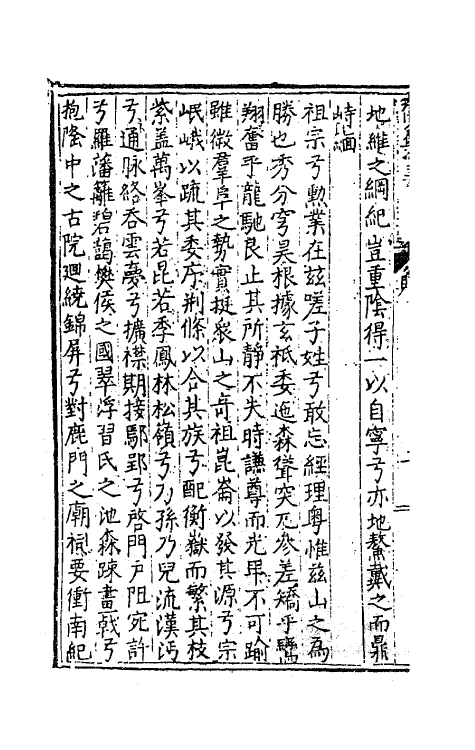 地維之綱紀豈重陰得一以自寧兮亦地鰲戴之而鼎
峙緬
祖宗兮勲業在兹嗟子姓兮敢忘經理粤惟兹山之為
勝也秀分穹昊根據玄祗委迤森聳突兀參差矯乎鸞
翔奮乎龍馳艮止其所静不失時謙尊而光卑不可踰
雖徽羣阜之勢實挺衆山之奇祖崑崙以發其源兮宗
岷峨以疏其委序荆條以合其族兮配衡嶽而繁其枝
紫盖萬峯兮若昆若季鳳林松嶺兮乃孫乃兒流漢沔
兮通脉絡吞雲夢兮擴襟期接鄢郢兮啓門户阻宛許
兮羅藩籬碧藹樊侯之國翠浮習氏之池森疎畫戟兮
抱陰中之古院廻繞錦屏兮對鹿門之廟祠要衝南紀